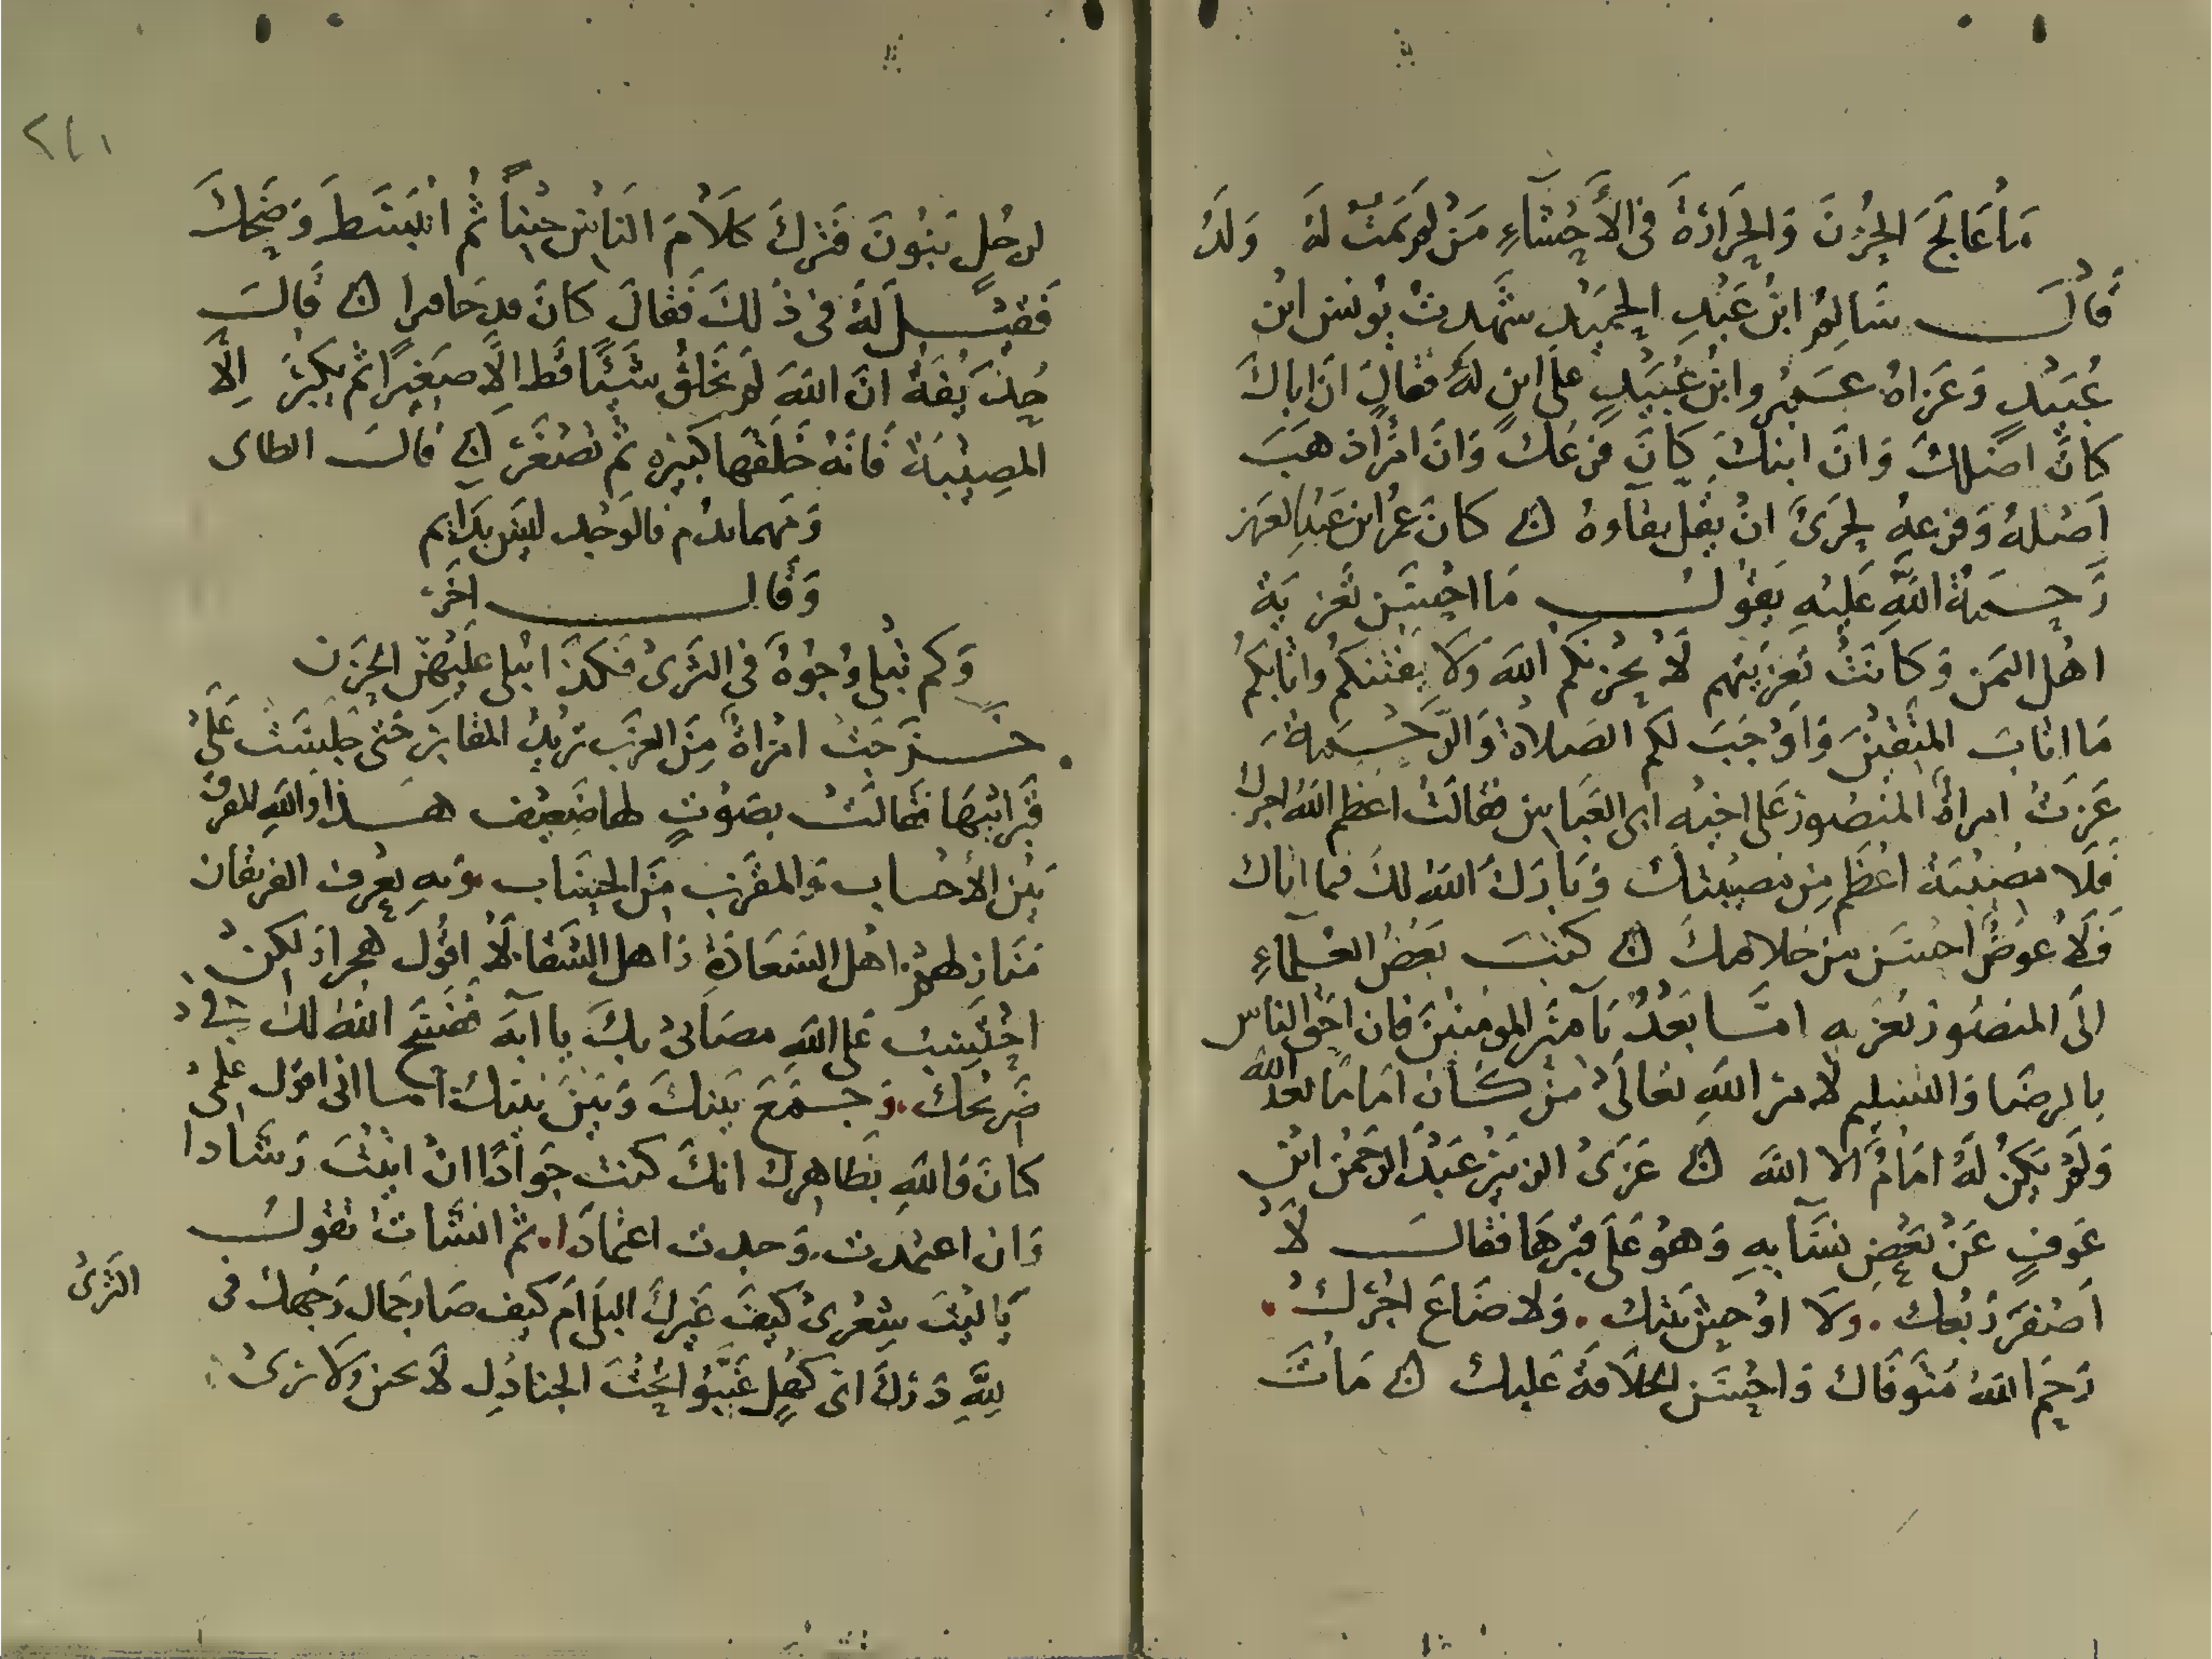 مَا عَالَجَ الحُزنَ وَالحَرَارَةَ فى الأَحْشَآءِ مَنْ لَم يَمُتْ لَهُ وَلَدُ
قَالَ سَالِمُ ابْنُ عَبْدِ الحَمِيْدِ شَهِدتُ يُونسَ ابْن
عُبَيْدٍ وَعَزاهُ عَمْرُو ابْنُ عُبَيْدٍ على ابنٍ لهُ فقالَ ان اباكَ
كانَ اصْلكَ وَانَ ابنكَ كانَ فرعُكَ وَانَ امْرأ ذهبَ
اَصْلهُ وَفرعهُ لحرىٌ انْ يقل بقاوهُ كانَ عمرُ ابن عَبْدِ العَزيز
رَحِمَهُ اللهَ عَليْهِ يَقوُلُ مَا احْسَنَ تَعْزِيَةَ
اهْلِ اليَمَن وَكانَتْ تَعزيتهم لَا يُحْزنكم اللهَ وَلَا يفتنكمُ واثابكمُ
مَا اثابَ المتقيْنَ وَاَوْجَبَ لكم الصَلاةَ وَالرَّحْمَةَ
عَزتْ امراةُ المنْصُورَ عَلى اخيْه ابى العَباسِ فقالتْ اعْظم اللهُ اجركَ
فَلَا مصْيبَةَ اعْظَم مِن مصيبْتكَ وَبَاركَ اللهُ لكَ فيما اتاك
فَلَا عِوَضٌ احسَن من خلافتكَ كتبَ بَعْضُ العُلَمآءِ
الَى المنصُور يُعَزيه امَّا بَعْدُ يَا آميْر المومنيْنَ فان احَق الناس
بالرضَا وَالتسْليم لَامر اللهِ تعالَى مَنْ كانَ امَامًا بعدَ اللهِ
وَلَمْ يَكنْ لَهُ امَامٌ الا اللهَ عَزى الزبَيْر عَبْدَ الرَحمنِ ابْنِ
عَوفٍ عَنْ بَعْضِ نسَآيهِ وَهوُ عَلَى قبْرهَا فقالَ لَا
اَصْفَرَ رَبْعكَ. ولَا اوْحِشَ بَيْتكَ. وَلا ضَاعَ اجْرُكَ.
رَحِمَ اللهَ مُتوَفاكَ وَاحْسَنَ الخلَافةَ عَليكَ مَاتَ
٢٤١
لرجُلٍ بَنوُنَ فتَركَ كلَامَ النَاسِ حِيْناً ثُم انْبَسَطَ وَضَحِكَ
فَقِيْلَ لَهُ فى ذلكَ فَقالَ كانَ مدحَامرا قَالَ
حُذَيْفَةُ انَ اللهَ لم يَخلقُ شَيْئًا قَط الَّا صَغِيْرًا ثم يكبُرَ اِلَّا
المصِيْبَةَ فَانهُ خَلقهَا كبيْره ثم تصْغرَ قَالَ الطاى
وَمَهما يدُم فالوَجْد ليسَ بدَايم
وَقالَ اخَرَ
وَكم تبْلى وُجوُهُ فى الثَرى فَكذا يبلى عَليهن الحزَن
خرَجَتْ امْراةٌ مِنَ العَرَب تريدُ المقابر حَتى جلَسَتْ عَلَى
قَبْر ابْنهَا فقالتْ بصَوْتٍ لها ضعِيْف هَذا وَاللهِ المفرقُ
بَيْن الأحْساب وَالمقرَب مِنَ الحِسَاب. وَبهِ يَعْرفُ الفريقان
مَنازلهمْ. اهْل السَعَادَةِ وَاهل الشقَا. لَا اقوُل هجرا وَلكنْ
احْتَسِبُ عَلى اللهِ مصَابى بكَ يا ابَهَ فَفسَحَ اللهُ لكَ فى
ضَريْحكَ. وَجَمَعَ بَينكَ وَبَيْنَ نَبيكَ امَا انى اقول علمىْ
كانَ وَاللهِ بظاهِركَ انكَ كنت جوَادًا انْ اتيْتَ رَشَادا
وَان اعتمدت. وَجدت اعتمادَا. ثم انشات تقولُ
يَا ليْتَ شِعْرىْ كيْفَ غيَركَ البلَى اَم كيف صَار جَمال وَجْهكَ فى
الثَرىْ
لِلهِ دَركَ اى كهْلٍ غَيَّبُوا تَحْتَ الجنادِلِ لَا يحس وَلَا يرىْ